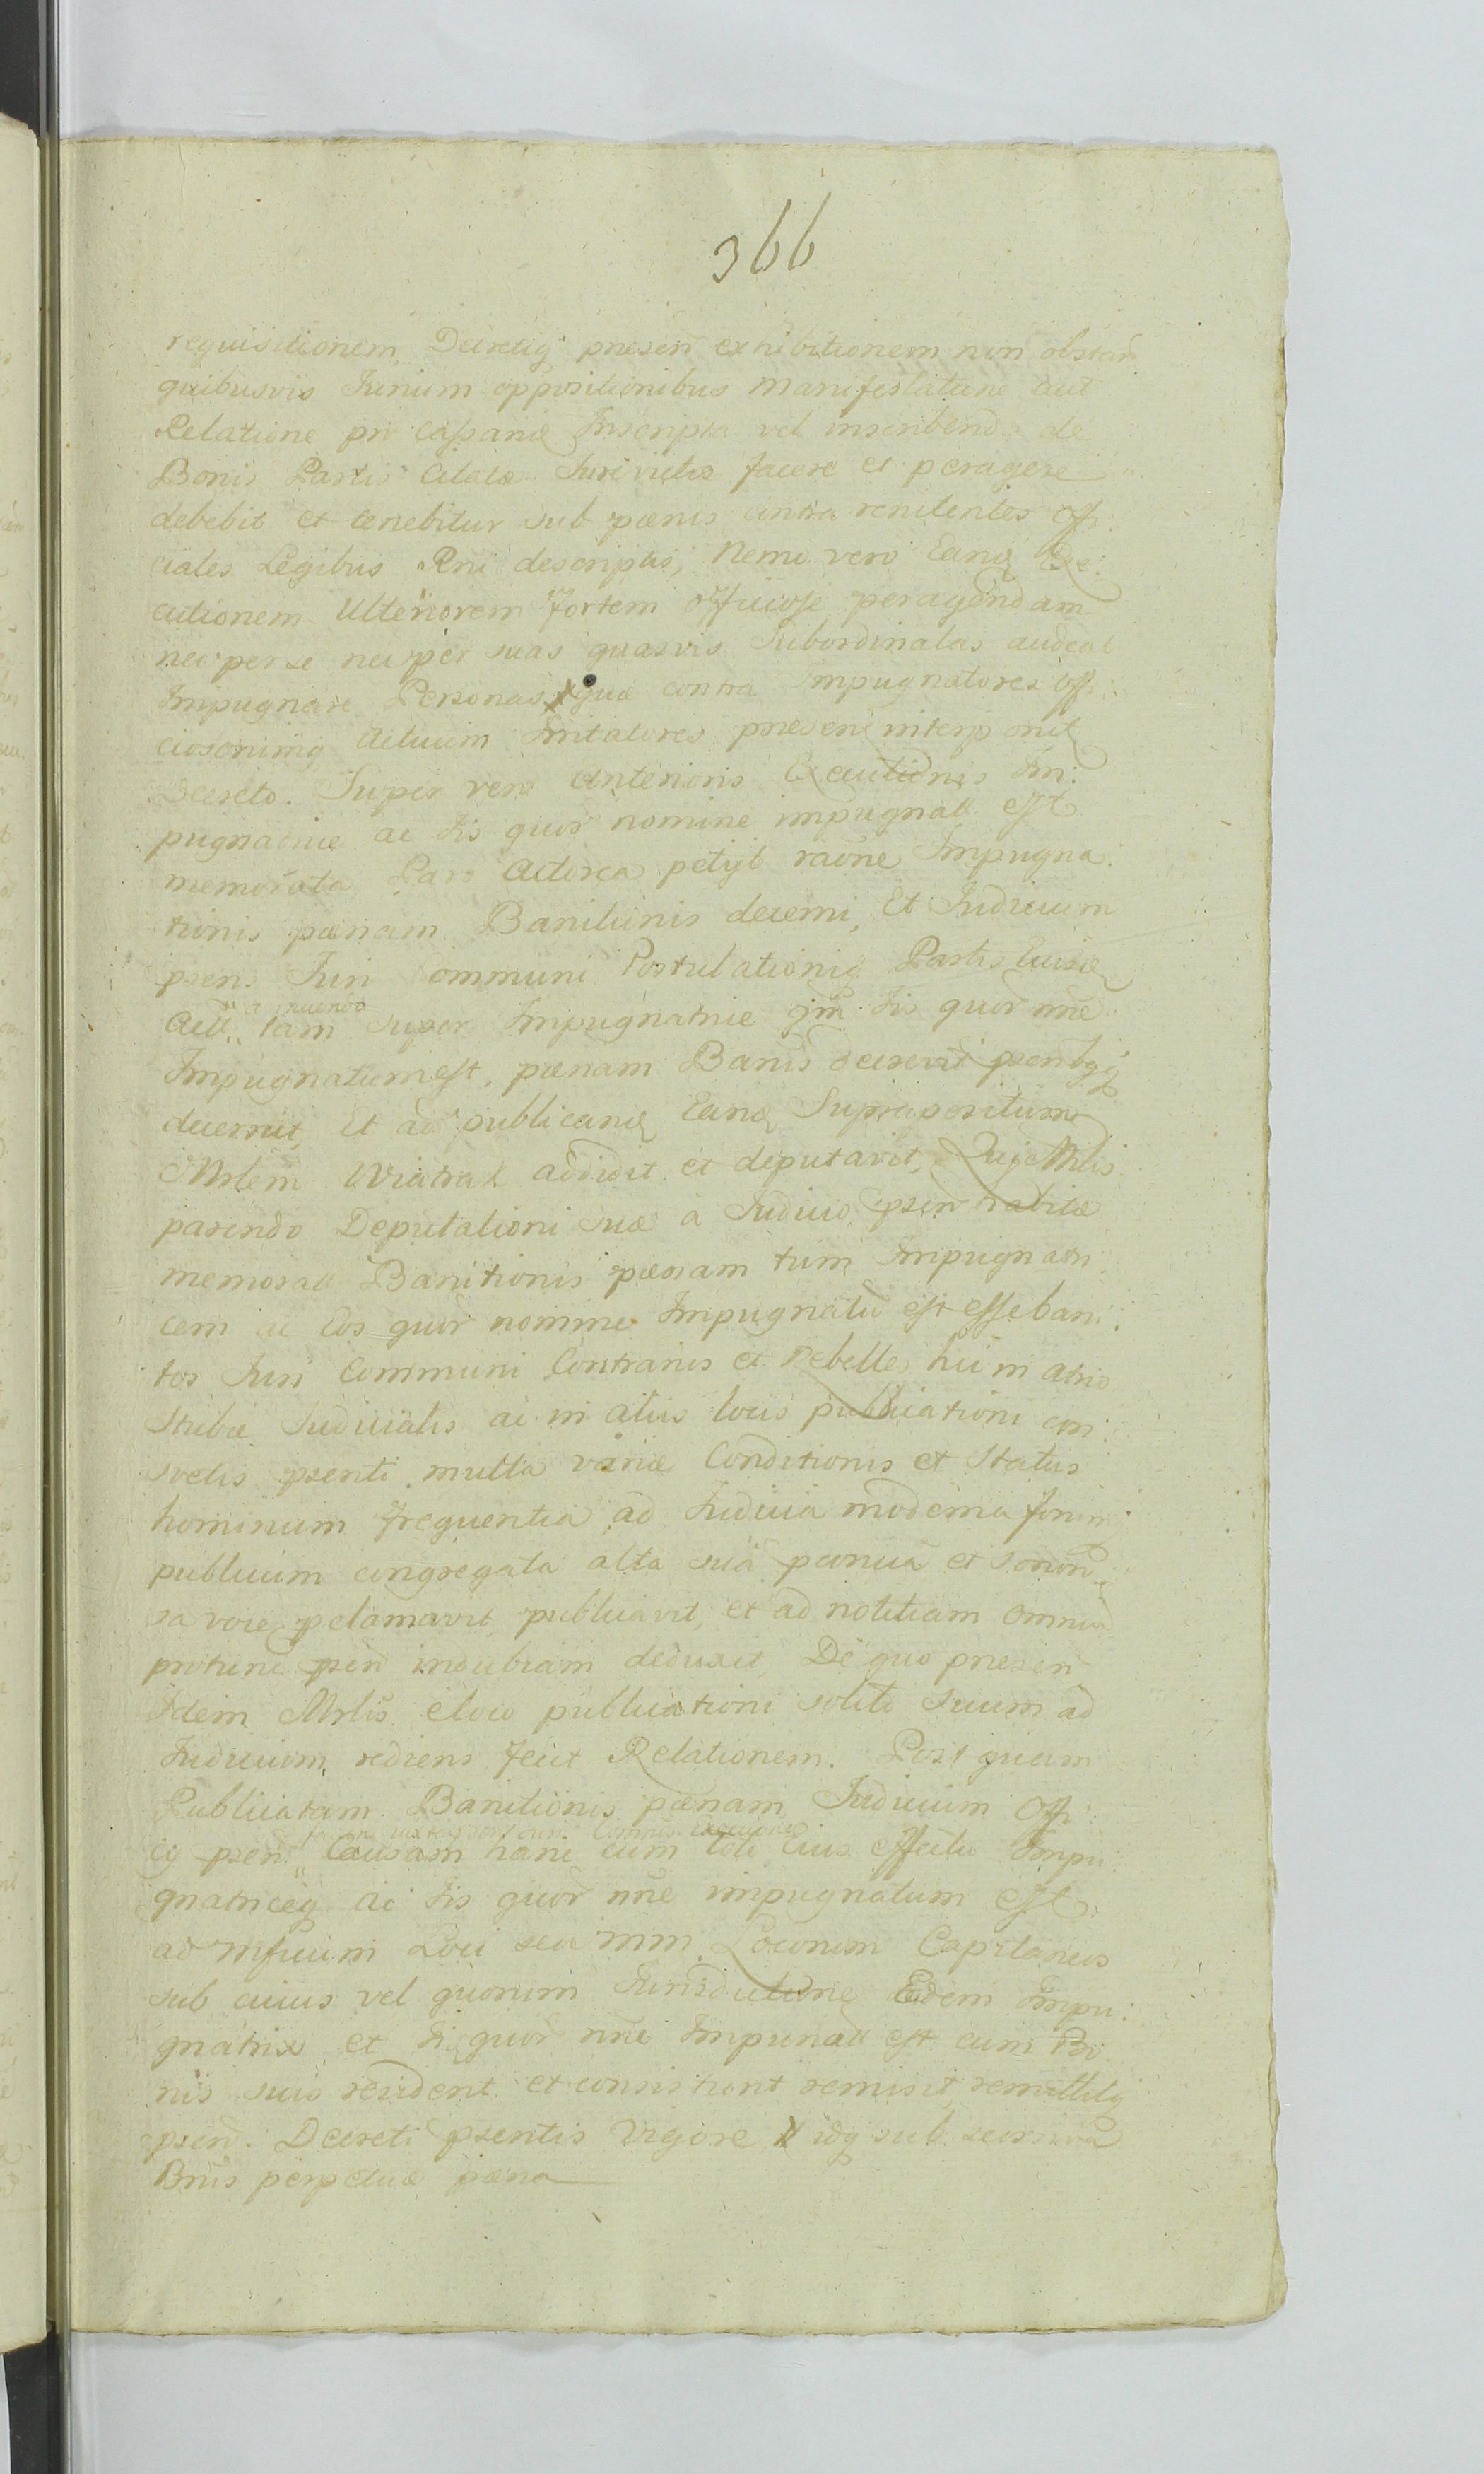 366
requisitionem Decretiq presen exhibitionem non obstan
quibusvis Jurium oppositionibus manifestatione aut
Relatione pro Cassané Inscripta vel inscribenda de
Bonis Partis Citatæ Jurevictæ facere et peragere
debebit et tenebitur sub pænis contra renitentes Offi:
ciales Legibus Rni descriptis, Nemo vero Eanq Exe:
cutionem Ulteriorem fortem officiose peragendam
nec per se nec per suas quasvis Subordinatas audeat
Impugnare Personas quæ contra Impugnatores offi:
ciosorumq Actuum Irritatores presen interponit
Decreto. Super vero Anterioris Executionis Im:
pugnatrice ac Iis quor nomine impugnatt est
memorata Pars Actorea petijt raone Impugna:
tionis pænam Banitionis decerni, Et Judicium
psens Juri Communi Postulationiq Partis
Act. annuendo tam super Impugnatrice qm Iis quor nne
Impugnatum est, pænam Banis decrevit
decernit, Et ad publicanq Eanq Suprapositum
Mrlem Wiatrak addidit et deputavit, Quiq Mrlis
parendo Deputationi suæ a Judicio psen habitæ
memorat Banitionis pænam tum Impugnatri
cem ac Eos quor nomine Impugnatu est esse bani:
tos Juri Communi Contrarios et Rebelles hui in atrio
Stubæ Judicialis ac in alijs locis publicationi con:
svetis psenti multa variæ Conditionis et Status
hominum frequentia ad Judicia moderna forum
publicum congregata alta suâ
sa voce pclamavit publicavit, et ad notitiam omniu
protunc psen indubiam deduxit De quo presen
Idem Mrlis eloco publicationi solito Suum ad
Judicium rediens fecit Relationem. Post quam
Publicatam Banitionis pænam Judicium Offi:
psen Causam hanc cum toto Eius effectu Impu:
gnatriceq ac Iis quor nne impugnatum est
ad Mficum Loci seu mm Locorum Capitaneos
sub cuius vel quorum Jurisdictione Eadem Impu:
gnatrix et Ii quor nne Impunatt est cum Bo
nis suis resident et consistunt remisit, remittitq
psen. Decreti psentis vigore idq sub
Bnis perpetuæ pæna